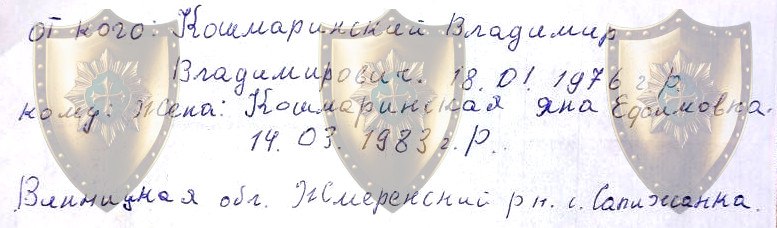 от кого: Кошмаринский Владимир
Владимирович. 18.01.1976 г.р.
кому: жена: Кошмаринская яна Ефимовка.
14.03.1983 г.р.
Винницкая обл. Жмеренский р н. с. Сапижанка.